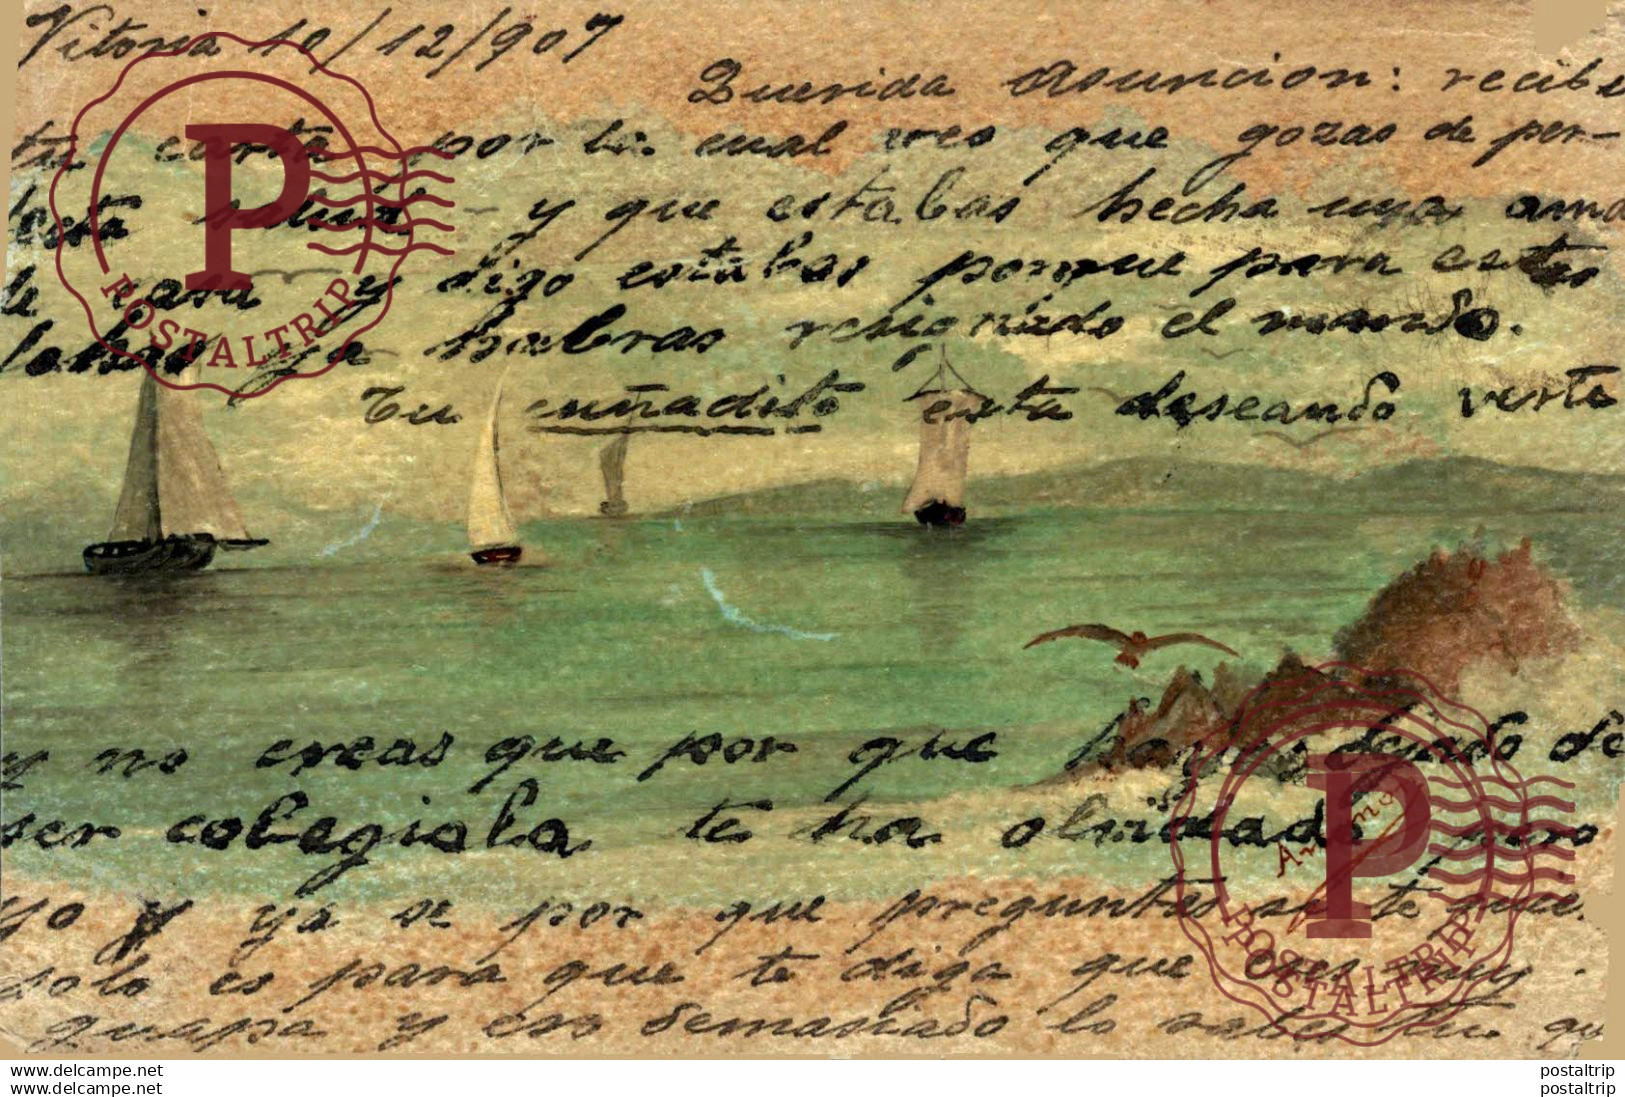 Vitoria 10/12/907
Querida Asuncion: recibi
tu carta por la cual veo que gozas de per-
fecta salud y que estabas hecha una ama
de casa y digo estabas porque para estas
ya habras resignado el mando.
Tu cuñadito esta deseando verte
y no creas que por que hayas dejado de
ser colegiala te ha olvidado pero
yo y ya se por que preguntas si te
solo es para que te diga que eres muy
guapa y eso demasiado lo sabes tu
P
POSTALTRIP
P
POSTALTRIP
www.delcampe.net
www.delcampe.net
postaltrip
postaltrip